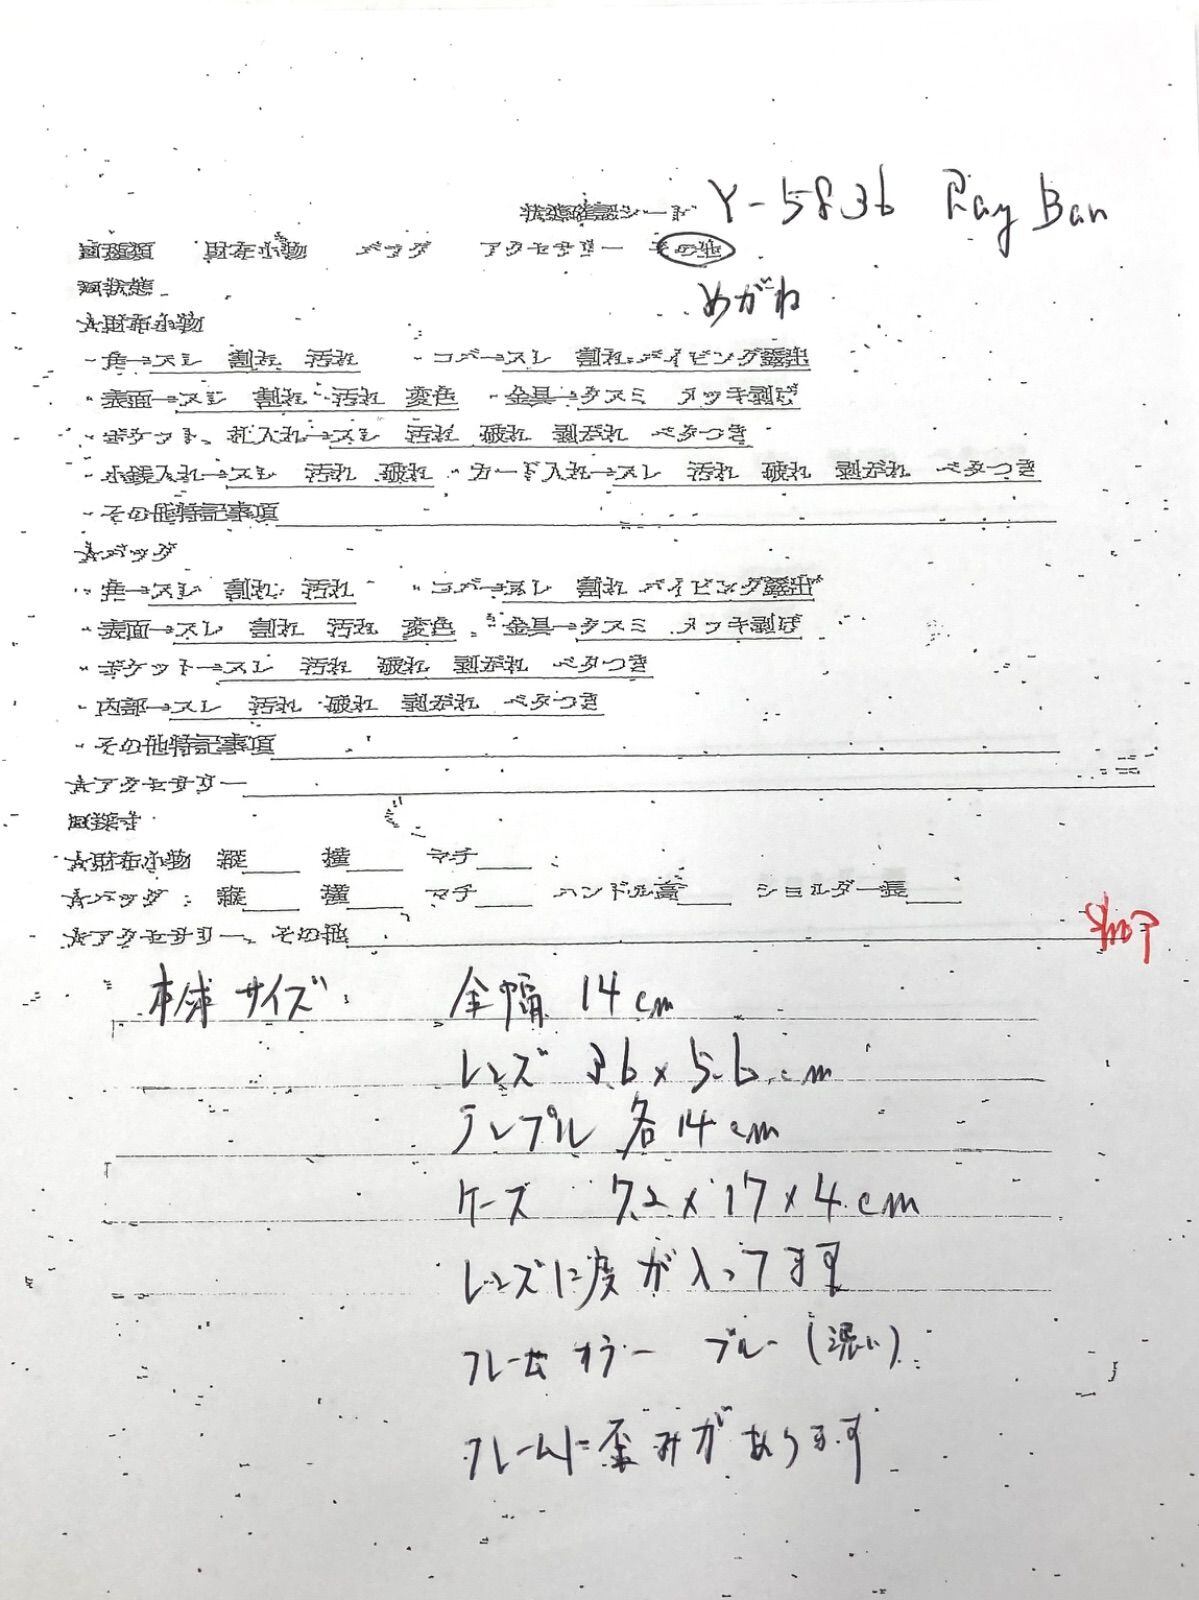 状態確認シート Y-5836 Ray Ban
□種類 財布小物 バッグ アクセサリー その他
めがね
□状態
☆財布小物
・角→スレ 割れ 汚れ ・コバ→スレ 割れ パイピング露出
・表面→スレ 割れ 汚れ 変色 ・金具→クスミ メッキ剥げ
・ポケット、札入れ→スレ 汚れ 破れ 剥がれ ベタつき
・小銭入れ→スレ 汚れ 破れ ・カード入れ→スレ 汚れ 破れ 剥がれ ベタつき
・その他特記事項
☆バッグ
・角→スレ 割れ 汚れ ・コバ→スレ 割れ パイピング露出
・表面→スレ 割れ 汚れ 変色 ・金具→クスミ メッキ剥げ
・ポケット→スレ 汚れ 破れ 剥がれ ベタつき
・内部→スレ 汚れ 破れ 剥がれ ベタつき
・その他特記事項
☆アクセサリー
□採寸
☆財布小物 縦 横 マチ
☆バッグ 縦 横 マチ ハンドル高 ショルダー長
☆アクセサリー、その他
本体サイズ: 全幅 14cm
レンズ 3.6×5.6cm
テンプル 各14cm
ケース 7.2×17×4cm
レンズに度が入ってます
フレームカラー ブルー(濃い)
フレームに歪みがあります